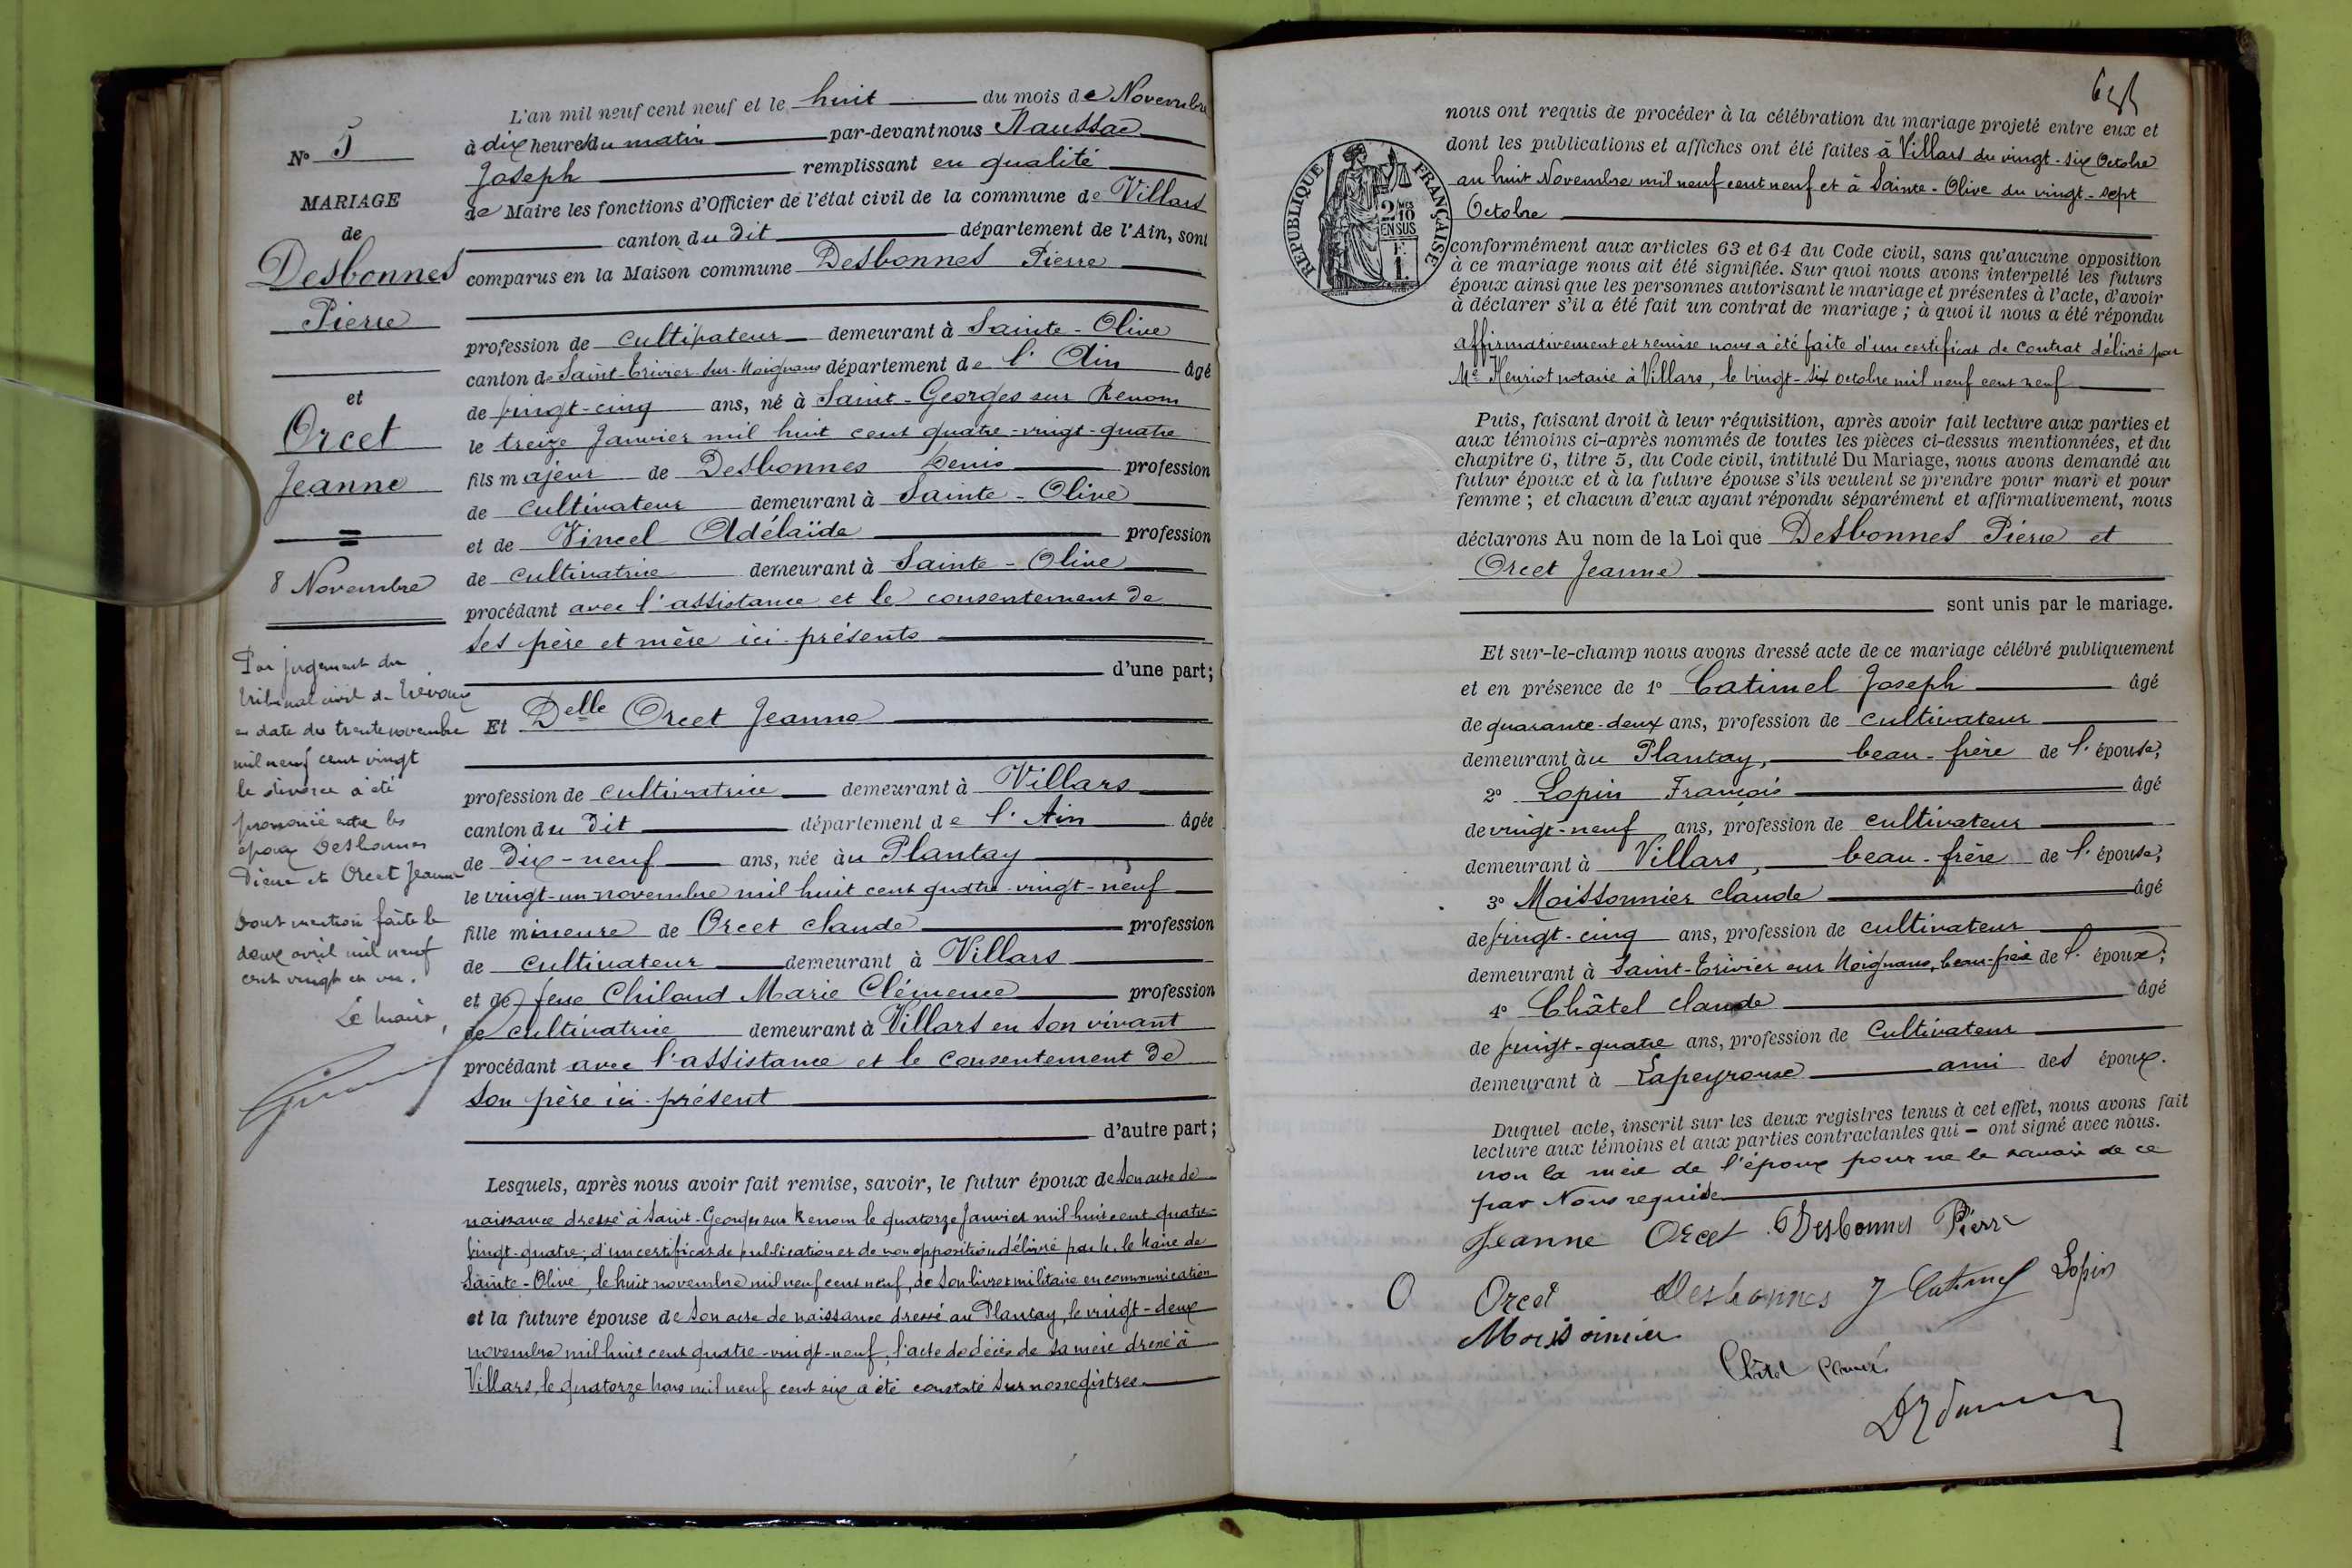 N° 5
MARIAGE
de
Desbonnes
Pierre
et
Orcet
Jeanne
8 Novembre
Par jugement du
tribunal civil de Trévoux
en date du trente novembre
mil neuf cent vingt
le divorce a été
prononcé entre les
époux Desbonnes
Pierre et Orcet Jeanne
Dont mention faite le
deux avril mil neuf
cent vingt et un.
Le Maire,
L'an mil neuf cent neuf et le huit du mois de Novembre
à dix heures du matin par-devant nous Naussac
Joseph remplissant en qualité
de Maire les fonctions d'Officier de l'état civil de la commune de Villars
canton du dit département de l'Ain, sont
comparus en la Maison commune Desbonnes Pierre
profession de cultivateur demeurant à Sainte-Olive
canton de Saint-Trivier-sur-Moignans département de l'Ain âgé
de vingt-cinq ans, né à Saint-Georges sur Renom
le treize Janvier mil huit cent quatre-vingt-quatre
fils majeur de Desbonnes Denis profession
de cultivateur demeurant à Sainte-Olive
et de Vincel Adélaïde profession
de cultivatrice demeurant à Sainte-Olive
procédant avec l'assistance et le consentement de
ses père et mère ici-présents
d'une part;
Et Delle Orcet Jeanne
profession de cultivatrice demeurant à Villars
canton du dit département de l'Ain âgée
de Dix-neuf ans, née au Plantay
le vingt-un novembre mil huit cent quatre-vingt-neuf
fille mineure de Orcet Claude profession
de cultivateur demeurant à Villars
et de feue Chiloud Marie Clémence profession
de cultivatrice demeurant à Villars en son vivant
procédant avec l'assistance et le consentement de
son père ici-présent
d'autre part;
Lesquels, après nous avoir fait remise, savoir, le futur époux de son acte de
naissance dressé à Saint-Georges sur Renom le quatorze Janvier mil huit cent quatre-
vingt-quatre; d'un certificat de publication et de non opposition délivré par M. le Maire de
Sainte-Olive, le huit novembre mil neuf cent neuf, de son livret militaire en communication
et la future épouse de son acte de naissance dressé au Plantay, le vingt-deux
novembre mil huit cent quatre-vingt-neuf, l'acte de décès de sa mère dressé à
Villars, le quatorze Mars mil neuf cent six a été constaté sur nos registres.
REPUBLIQUE FRANÇAISE
2/10 MES
EN SUS
F.
1.
nous ont requis de procéder à la célébration du mariage projeté entre eux et
dont les publications et affiches ont été faites à Villars du vingt-six Octobre
au huit Novembre mil neuf cent neuf et à Sainte-Olive du vingt-sept
Octobre
conformément aux articles 63 et 64 du Code civil, sans qu'aucune opposition
à ce mariage nous ait été signifiée. Sur quoi nous avons interpellé les futurs
époux ainsi que les personnes autorisant le mariage et présentes à l'acte, d'avoir
à déclarer s'il a été fait un contrat de mariage; à quoi il nous a été répondu
affirmativement et remise nous a été faite d'un certificat de contrat délivré par
Me Henriot notaire à Villars, le vingt-six octobre mil neuf cent neuf
Puis, faisant droit à leur réquisition, après avoir fait lecture aux parties et
aux témoins ci-après nommés de toutes les pièces ci-dessus mentionnées, et du
chapitre 6, titre 5, du Code civil, intitulé Du Mariage, nous avons demandé au
futur époux et à la future épouse s'ils veulent se prendre pour mari et pour
femme; et chacun d'eux ayant répondu séparément et affirmativement, nous
déclarons Au nom de la Loi que Desbonnes Pierre et
Orcet Jeanne
sont unis par le mariage.
Et sur-le-champ nous avons dressé acte de ce mariage célébré publiquement
et en présence de 1° Catimel Joseph âgé
de quarante-deux ans, profession de cultivateur
demeurant au Plantay, beau-frère de l'épouse;
2° Lopin François âgé
de vingt-neuf ans, profession de cultivateur
demeurant à Villars, beau-frère de l'épouse;
3° Moissonnier Claude âgé
de vingt-cinq ans, profession de cultivateur
demeurant à Saint-Trivier sur Moignans, beau-frère de l'époux;
4° Châtel Claude âgé
de vingt-quatre ans, profession de Cultivateur
demeurant à Lapeyrouse ami des époux.
Duquel acte, inscrit sur les deux registres tenus à cet effet, nous avons fait
lecture aux témoins et aux parties contractantes qui - ont signé avec nous.
non la mère de l'époux pour ne le savoir de ce
par Nous requise
Jeanne Orcet Desbonnes Pierre
Orcet Desbonnes J Catimel Lopin
Moissonnier
Châtel Claude